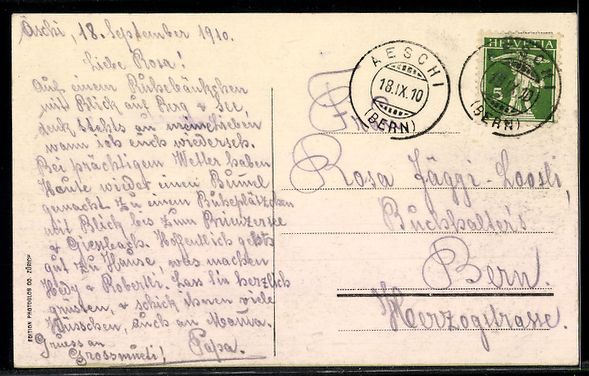 Äschi, 18. September 1910.
Liebe Rosa!
Auf einem Ruhebänkchen
mit Blick auf Berg & See,
denk stehts an meine lieben
wann ich euch wiederseh.
Bei prächtigem Wetter haben
Haute wieder einen Buml
gemacht zu einem Ruheplätzchen
mit Blick bis zum Brienzersee
& Giessbach. Hoffentlich gehts
gut zu Hause, was machen
Hedy & Robertli. Lass sie herzlich
grüsten, & schick ihnen viele
Küsschen, auch an Mama.
Gruess an
Grossmueti! Papa.
EDITION PHOTOGLOB CO. ZÜRICH
AESCHI
18.IX.10
(BERN)
HELVETIA
5
AESCHI
(BERN)
Frau
Rosa Jäggi-Loosli,
Buchhalter's
Bern.
Herzogstrasse.